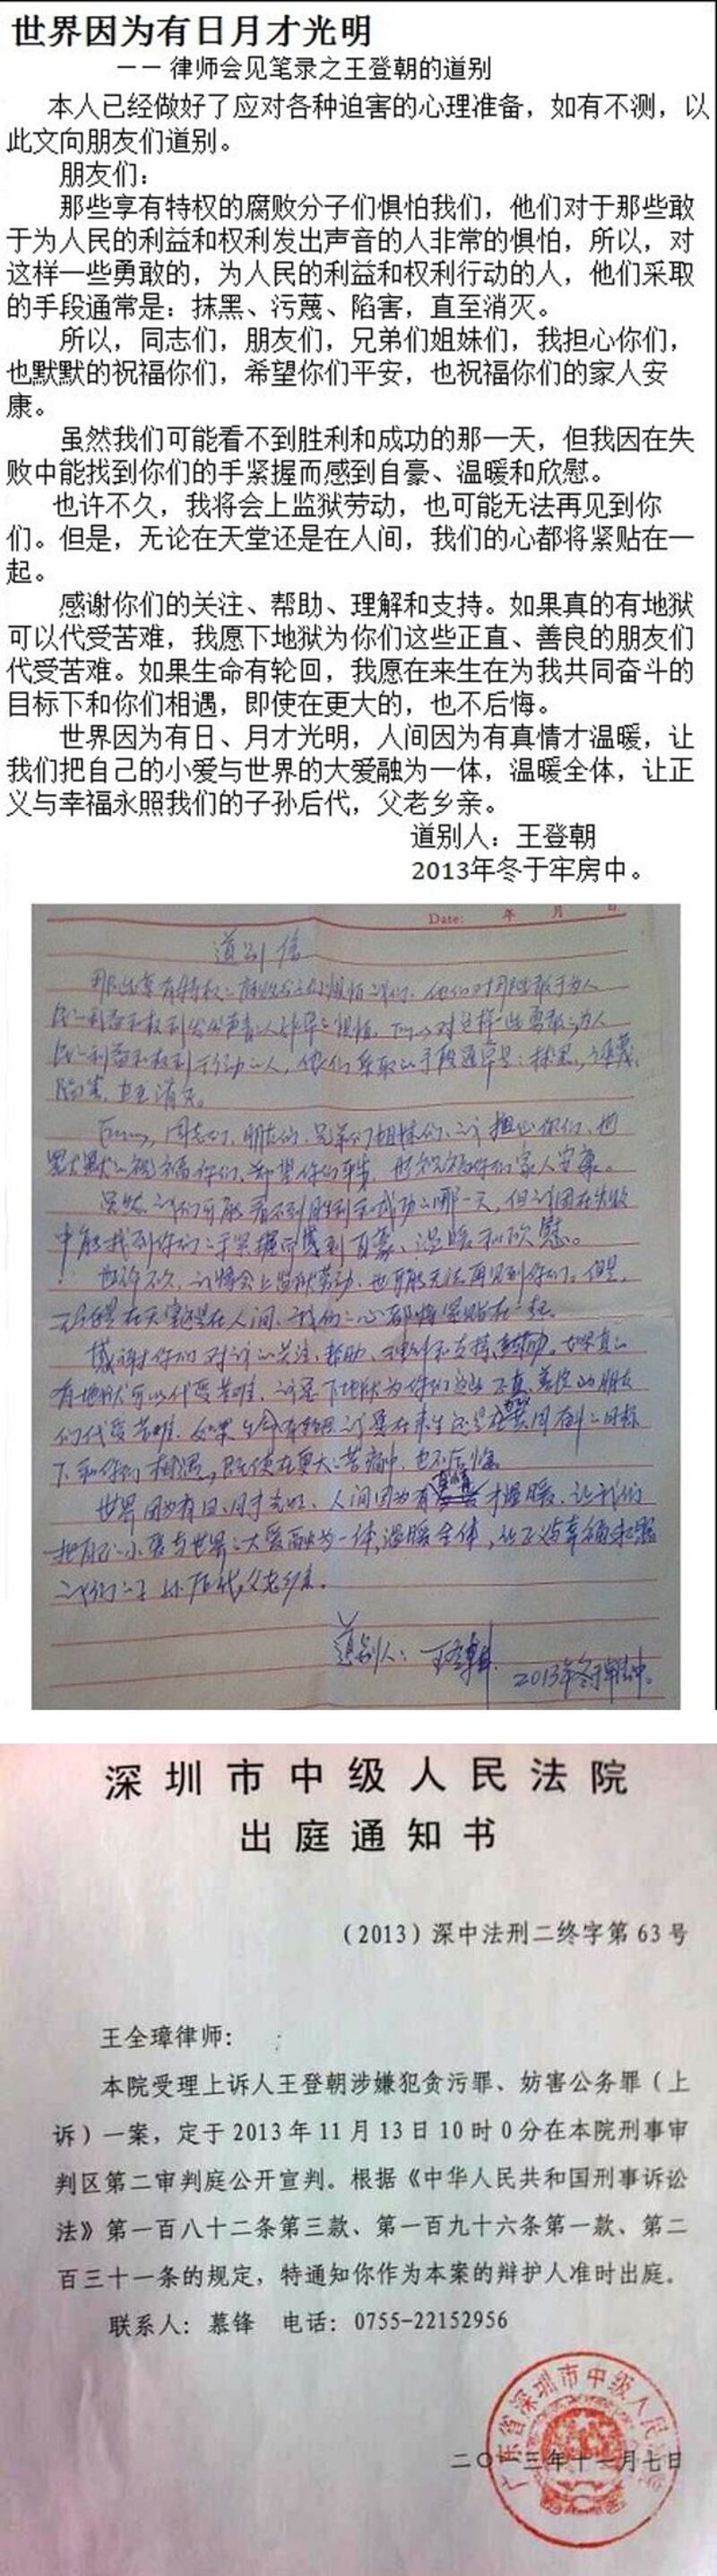 世界因为有日月才光明
—— 律师会见笔录之王登朝的道别
本人已经做好了应对各种迫害的心理准备，如有不测，以
此文向朋友们道别。
朋友们：
那些享有特权的腐败分子们惧怕我们，他们对于那些敢
于为人民的利益和权利发出声音的人非常的惧怕，所以，对
这样一些勇敢的，为人民的利益和权利行动的人，他们采取
的手段通常是：抹黑、污蔑、陷害，直至消灭。
所以，同志们，朋友们，兄弟们姐妹们，我担心你们，
也默默的祝福你们，希望你们平安，也祝福你们的家人安
康。
虽然我们可能看不到胜利和成功的那一天，但我因在失
败中能找到你们的手紧握而感到自豪、温暖和欣慰。
也许不久，我将会上监狱劳动，也可能无法再见到你
们。但是，无论在天堂还是在人间，我们的心都将紧贴在一
起。
感谢你们的关注、帮助、理解和支持。如果真的有地狱
可以代受苦难，我愿下地狱为你们这些正直、善良的朋友们
代受苦难。如果生命有轮回，我愿在来生在为我共同奋斗的
目标下和你们相遇，即使在更大的，也不后悔。
世界因为有日、月才光明，人间因为有真情才温暖，让
我们把自己的小爱与世界的大爱融为一体，温暖全体，让正
义与幸福永照我们的子孙后代，父老乡亲。
道别人：王登朝
2013年冬于牢房中。
Date: 年 月 日
道别信
那些享有特权的腐败分子们惧怕我们，他们对那些敢于为人
民的利益和权利发出声音的人非常的惧怕，所以对这样一些勇敢的为人
民的利益和权利行动的人，他们采取的手段通常是：抹黑，污蔑，
陷害，直至消灭。
所以，同志们，朋友们，兄弟们姐妹们，我担心你们，也
默默的祝福你们，希望你们平安，也祝福你们家人安康。
虽然我们可能看不到胜利和成功的那一天，但我因在失败
中能找到你们的手紧握而感到自豪、温暖和欣慰。
也许不久，我将会上监狱劳动，也可能无法再见到你们。但是，
无论是在天堂还是在人间，我们的心都将紧贴在一起。
感谢你们对我的关注、帮助、理解和支持。如果真的
有地狱可以代受苦难，我愿下地狱为你们这些正直、善良的朋友
们代受苦难。如果生命有轮回，我愿在来生还是在共同奋斗的目标
下和你们相遇，即使在更大的苦痛中，也不后悔。
世界因为有日、月才光明，人间因为有真情才温暖，让我们
把自己的小爱与世界的大爱融为一体，温暖全体，让正义与幸福永照
我们的子孙后代，父老乡亲。
道别人：王登朝
2013年冬于牢房中。
深圳市中级人民法院
出庭通知书
（2013）深中法刑二终字第63号
王全璋律师：
本院受理上诉人王登朝涉嫌犯贪污罪、妨害公务罪（上
诉）一案，定于2013年11月13日10时0分在本院刑事审
判区第二审判庭公开宣判。根据《中华人民共和国刑事诉讼
法》第一百八十二条第三款、第一百九十六条第一款、第二
百三十一条的规定，特通知你作为本案的辩护人准时出庭。
联系人：慕锋 电话：0755-22152956
广东省深圳市中级人民
二〇一三年十一月七日